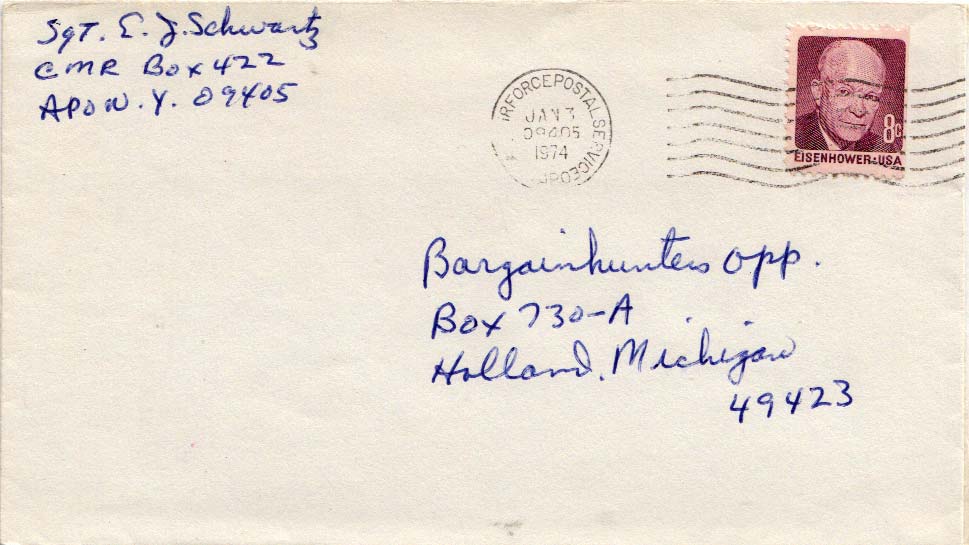 Sgt. E. J. Schwartz
CMR Box 422
APO N.Y. 09405
RFORCE POSTAL SERVICE
JAN 3
09405
1974
APO
8c
EISENHOWER·USA
Bargainhunters Opp.
Box 730-A
Holland, Michigan
49423